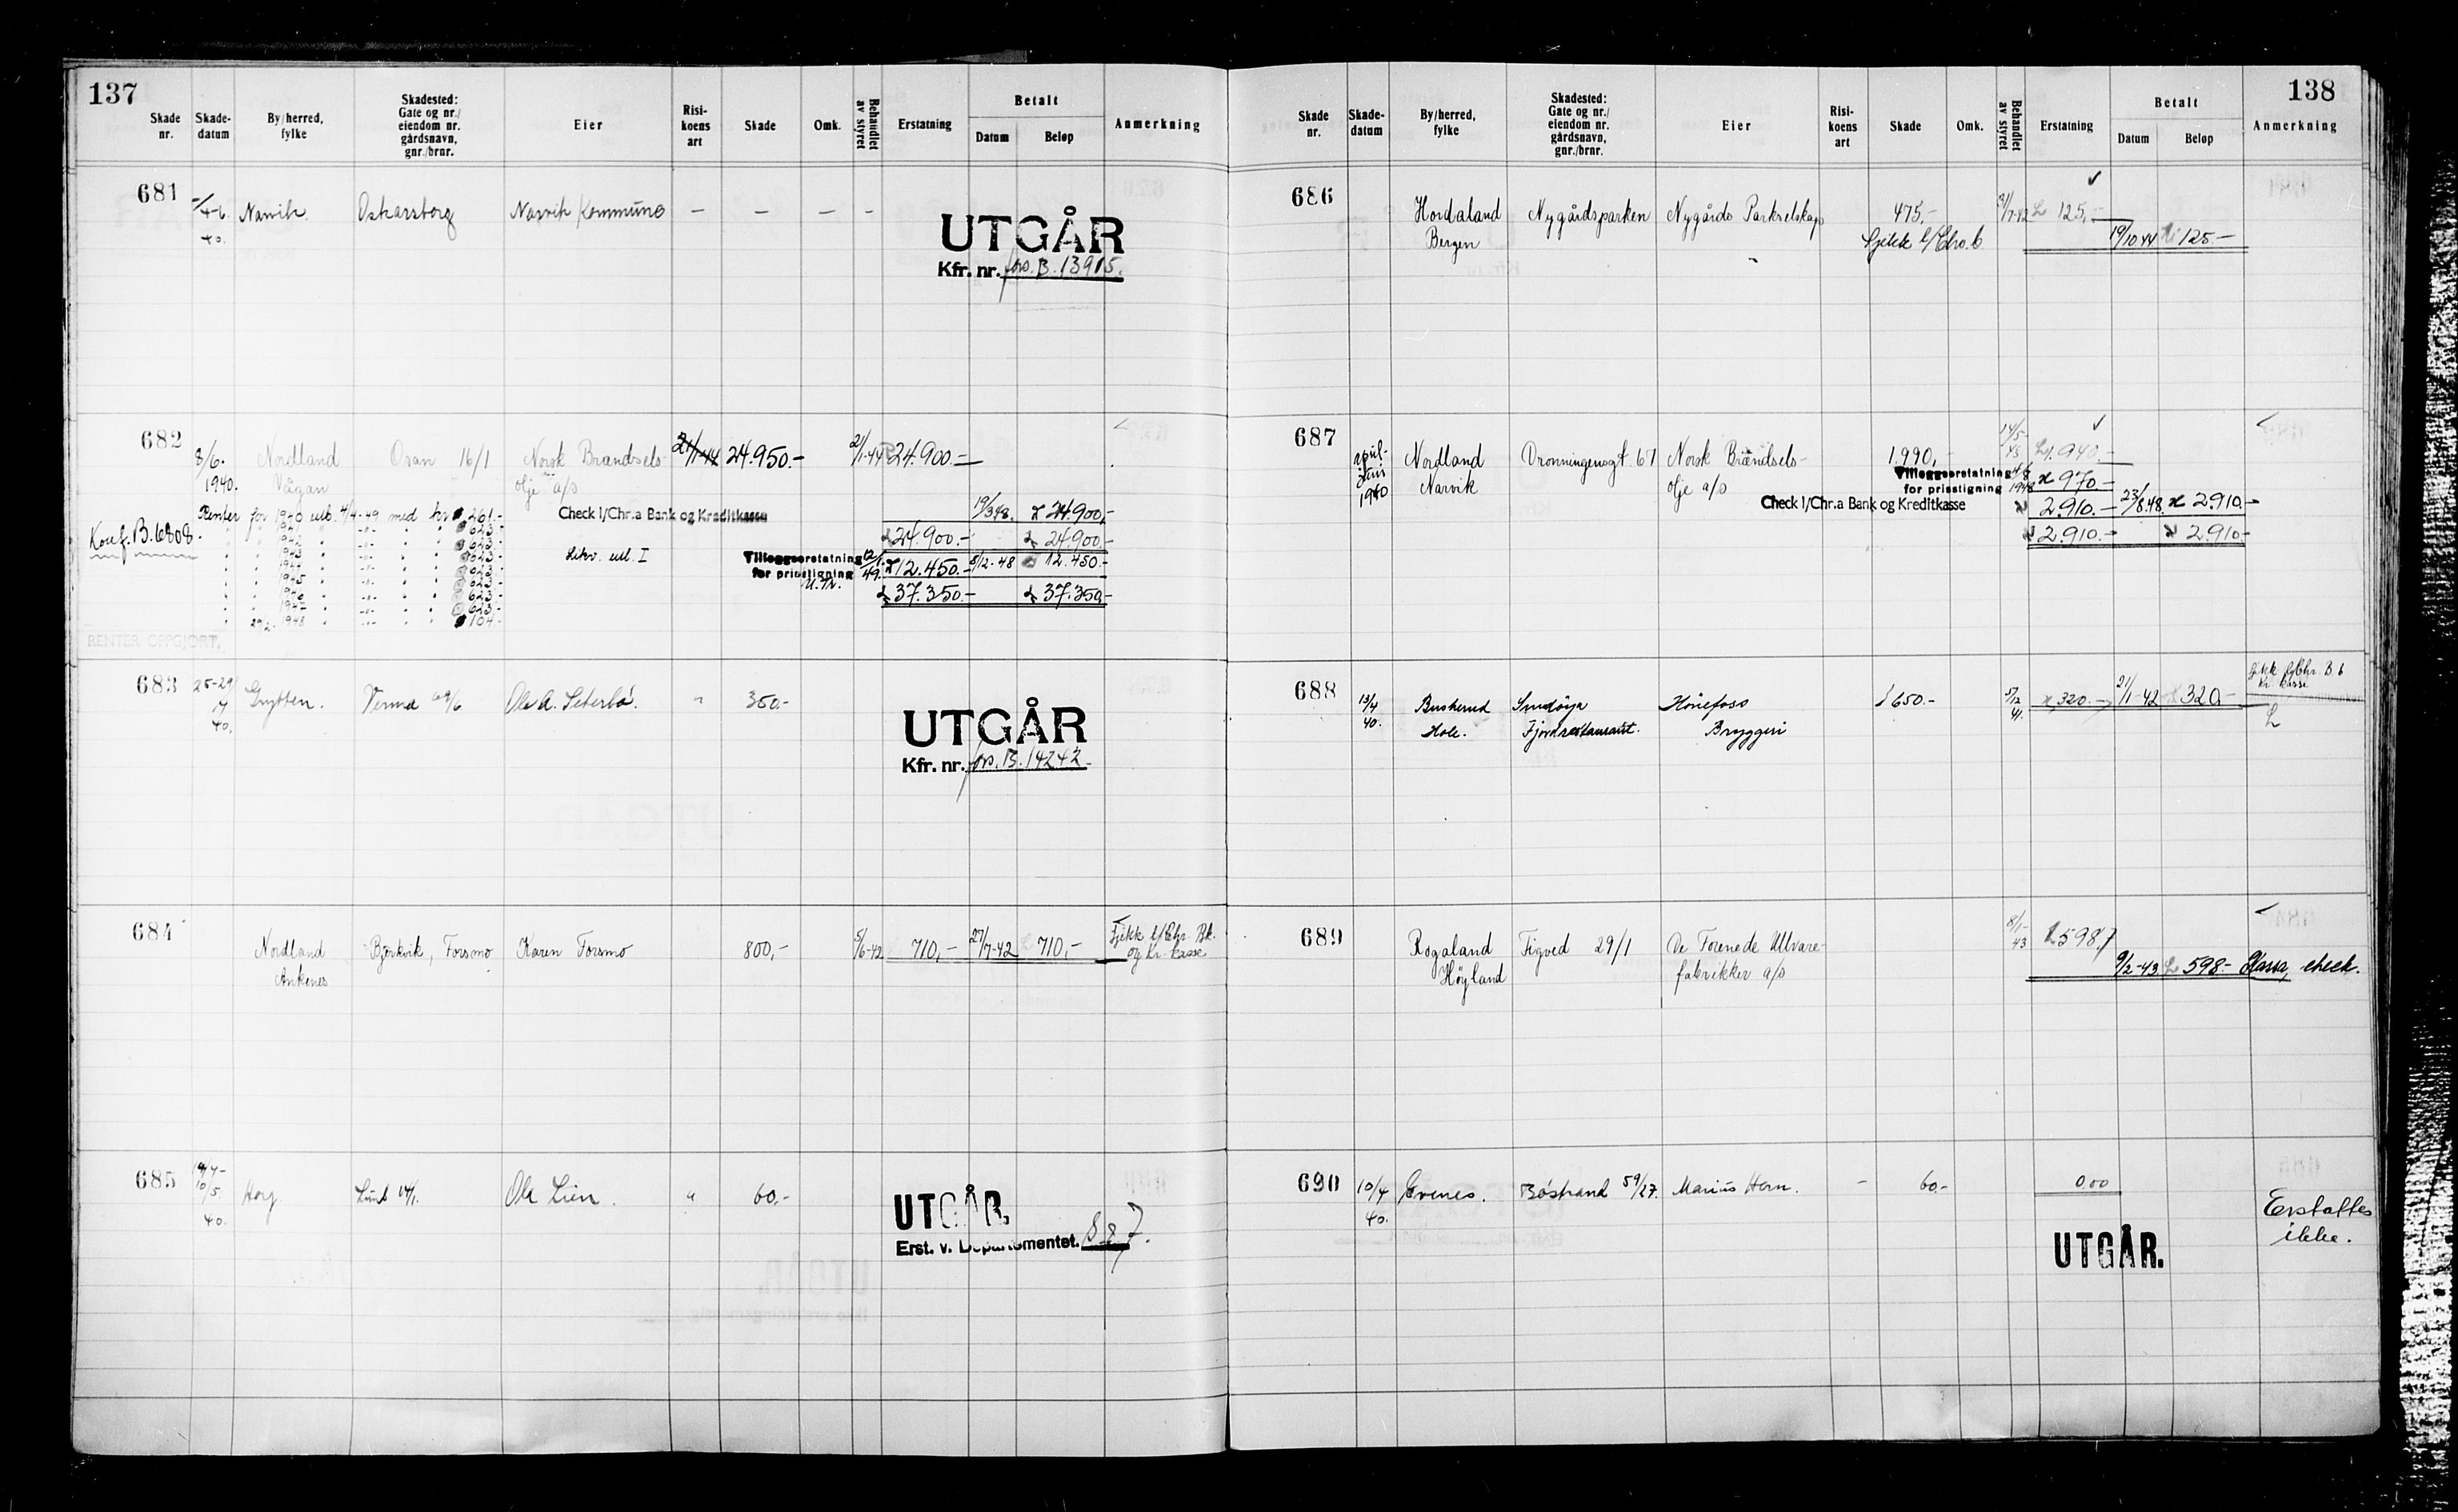 137
Skade nr.
Skade-datum
By/herred, fylke
Skadested: Gate og nr./ eiendom nr. gårdsnavn, gnr./brnr.
Eier
Risi-koens art
Skade
Omk.
Behandlet av styret
Erstatning
Betalt
Datum
Beløp
Anmerkning
681
9/4-6. 40.
Narvik.
Oskarsborg
Narvik Kommune
— — — —
UTGÅR
Kfr. nr. fors. B. 13915.
682
8/6. 1940.
Nordland
Vågan
Osan 16/1
Norsk Brændsels-
olje a/s
21/1-44
24.950.-
21/1-44
24.900.-
Renter for 1940 utb. 4/4-49 med kr. 261.-
Konf. B. 6808.
" " 1941 " -"- " " 623.-
" " 1942 " -"- " " 623.-
" " 1943 " -"- " " 623.-
" " 1944 " -"- " " 623.-
" " 1945 " -"- " " 623.-
" " 1946 " -"- " " 623.-
" " 1947 " -"- " " 623.-
" 29/2- 1948 " -"- " " 104.-
RENTER OPPGJORT.
Check l/Chr.a Bank og Kreditkasse
19/3 48. 24.900,-
24.900.- 24.900.-
Likv. utl. I
Tilleggserstatning
for prisstigning
12/1. 49.
12.450.- 8/12-48 12.450.-
37.350.- 37.350,-
683
25-29/4 40.
Grytten.
Verma 69/6
Ole A. Seterbö.
"
350.-
UTGÅR
Kfr. nr. fors. B. 14242.
684
Nordland
Ankenes
Bjørkvik, Forsmo
Karen Forsmo
800,-
5/6-42
710,-
27/7-42
710,-
Sjekk l/Chr. Bk.
og Kr. kasse
685
19/4-
10/5.
40.
Horg
Lund 14/1.
Ole Lien.
"
60.-
UTGÅR.
Erst. v. Departementet. 887.
138
Skade nr.
Skade-datum
By/herred, fylke
Skadested: Gate og nr./ eiendom nr. gårdsnavn, gnr./brnr.
Eier
Risi-koens art
Skade
Omk.
Behandlet av styret
Erstatning
Betalt
Datum
Beløp
Anmerkning
686
Hordaland
Bergen
Nygårdsparken
Nygårds Parkselskap
475.-
Sjekk l/Chra. b
125,-
19/10 44 125.-
687
april-
juni
1940
Nordland
Narvik
Dronningensgt. 67
Norsk Brændsels-
olje a/s
1.990,-
14/5-43
1.940.-
Tilleggserstatning
for prisstigning
4/8 1948
970.-
Check l/Chr.a Bank og Kreditkasse
2.910.- 23/8.48. 2.910.-
2.910.- 2.910.-
688
13/4 40.
Buskerud
Hole.
Sundøya
Fjordrestaurant.
Hönefoss
Bryggeri
650.-
5/12 41.
320.-
21/1-42
320.-
Sjekk l/Chr. B. b
Kr. kasse
689
Rogaland
Høyland
Figved 29/1
De Forenede Ullvare-
fabrikker a/s
8/1-43
598,-
9/2-43 598.- Kassa, check.
690
10/4 40.
Evenes.
Böstrand 59/27.
Marius Horn.
-
60.-
0,00
UTGÅR.
Erstattes
ikke.